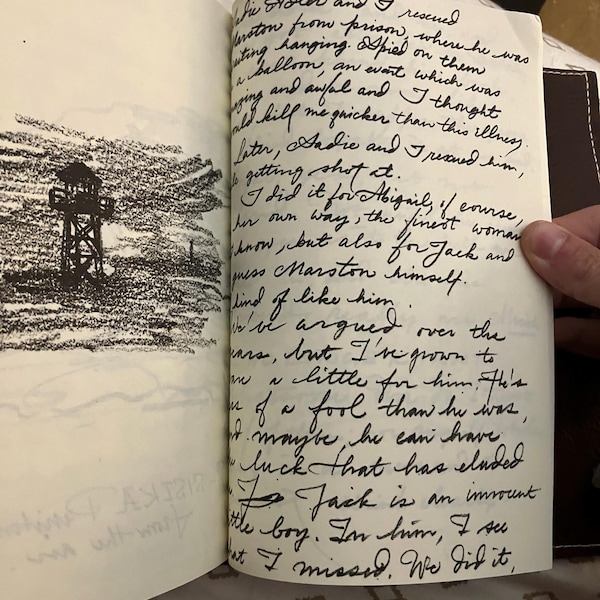 SISIKA
from the
adie Adler and I rescued
Marston from prison, where he was
iting hanging. Spied on them
a balloon, an event which was
zing and awful and I thought
ould kill me quicker than this illness.
Later, Sadie and I rescued him,
getting shot at.
I did it for Abigail, of course,
her own way, the finest woman
know, but also for Jack and
guess Marston himself.
kind of like him.
We've argued over the
ears, but I've grown to
a little for him. He's
of a fool than he was,
maybe, he can have
luck that has eluded
Jack is an innocent
ttle boy. In him, I see
hat I missed. We did it,